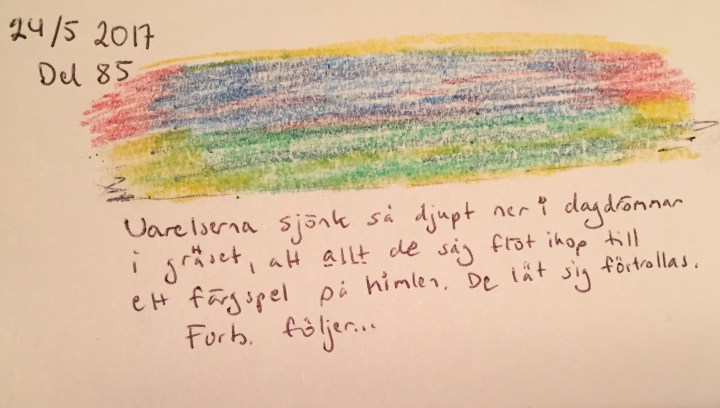 24/5 2017
Del 85
Varelserna sjönk så djupt ner i dagdrömmar
i gräset, att allt de såg flöt ihop till
ett färgspel på himlen. De lät sig förtrollas.
Forts. följer...